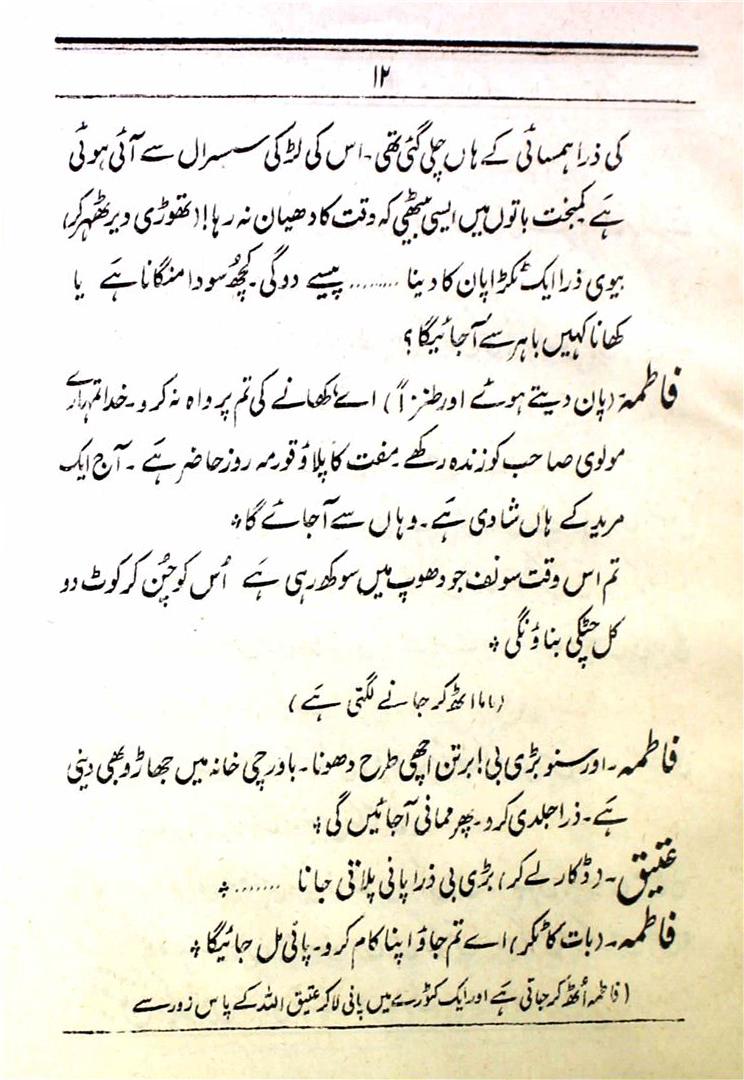 ۱۲
کی ذرا ہمسائی کے ہاں چلی گئی تھی۔ اس کی لڑکی سسرال سے آئی ہوئی
ہے کمبخت باتوں میں ایسی بیٹھی کہ وقت کا دھیان نہ رہا! (تھوڑی دیر ٹھہر کر)
بیوی ذرا ایک ٹکڑا پان کا دینا ........ پیسے دوگی۔ کچھ سودا منگانا ہے یا
کھانا کہیں باہر سے آجائیگا؟
فاطمہ (پان دیتے ہوئے اور طنزاً) اے کھانے کی تم پرواہ نہ کرو۔ خدا تمہارے
مولوی صاحب کو زندہ رکھے۔ مفت کا پلاؤ قورمہ روز حاضر ہے۔ آج ایک
مرید کے ہاں شادی ہے۔ وہاں سے آجائے گا ٭
تم اس وقت سونف جو دھوپ میں سوکھ رہی ہے اُس کو چُن کر کوٹ دو
کل چٹکی بناؤنگی ٭
(ماما اٹھ کر جانے لگتی ہے)
فاطمہ۔ اور سنو بڑی بی! برتن اچھی طرح دھونا۔ باورچی خانہ میں جھاڑو بھی دینی
ہے۔ ذرا جلدی کرو۔ پھر ممانی آجائیں گی ٭
عتیق۔ (ڈکار لے کر) بڑی بی ذرا پانی پلاتی جانا ....... ٭
فاطمہ۔ (بات کاٹکر) اے تم جاؤ اپنا کام کرو۔ پانی مل جائیگا ٭
(فاطمہ اُٹھ کر جاتی ہے اور ایک کٹورے میں پانی لا کر عتیق اللہ کے پاس زور سے